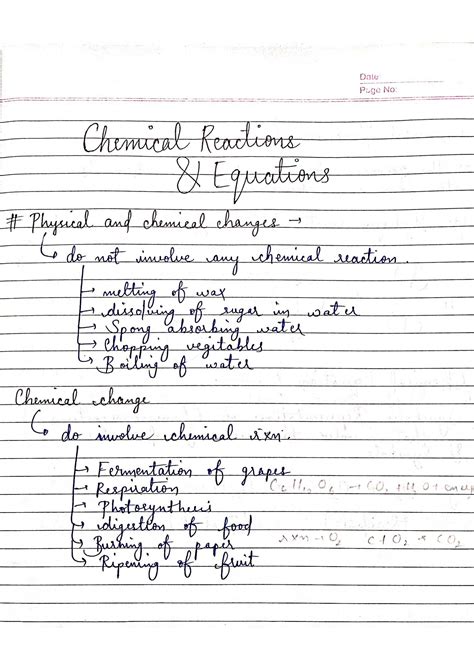 Date
Page No.
Chemical Reactions
& Equations
# Physical and chemical changes →
↳ do not involve any chemical reaction.
→ melting of wax
→ dissolving of sugar in water
→ Spong absorbing water
→ Chopping vegitables
→ Boiling of water
Chemical change
↳ do involve chemical rxn.
→ Fermentation of grapes
→ Respiration C6H12O6 → CO2 + H2O +
→ Photosynthesis
→ digestion of food
→ Burning of paper rxn → O2 C + O2 CO2
→ Ripening of fruit